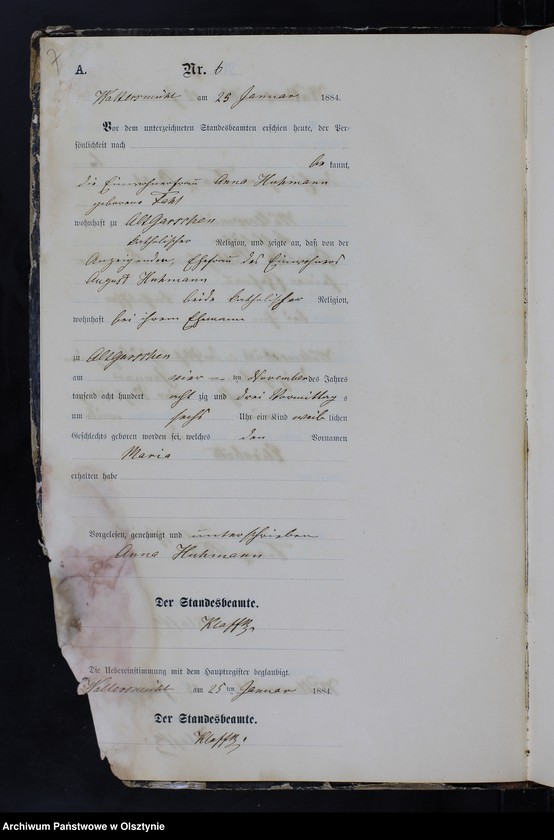 7
A. Nr. 6
Waltersmühl am 25 Januar 1884.
Vor dem unterzeichneten Standesbeamten erschien heute, der Per-
sönlichkeit nach
be kannt,
die Einwohnerfrau Anna Huhmann
geborene
wohnhaft zu AltGarschen
katholischer Religion, und zeigte an, daß von der
Anzeigenden, Ehefrau des Einwohners
August Huhmann
beide katholischer Religion,
wohnhaft bei ihrem Ehemann
zu Altgarschen
am vier ten November des Jahres
tausend acht hundert acht zig und drei Vormittag s
um sechs Uhr ein Kind weib lichen
Geschlechts geboren worden sei, welches den Vornamen
Maria
erhalten habe
Vorgelesen, genehmigt und unterschrieben
Anna Huhmann
Der Standesbeamte.
Klafki
Die Uebereinstimmung mit dem Hauptregister beglaubigt.
Waltersmühl am 25 ten Januar 1884
Der Standesbeamte.
Klafki
Archiwum Państwowe w Olsztynie